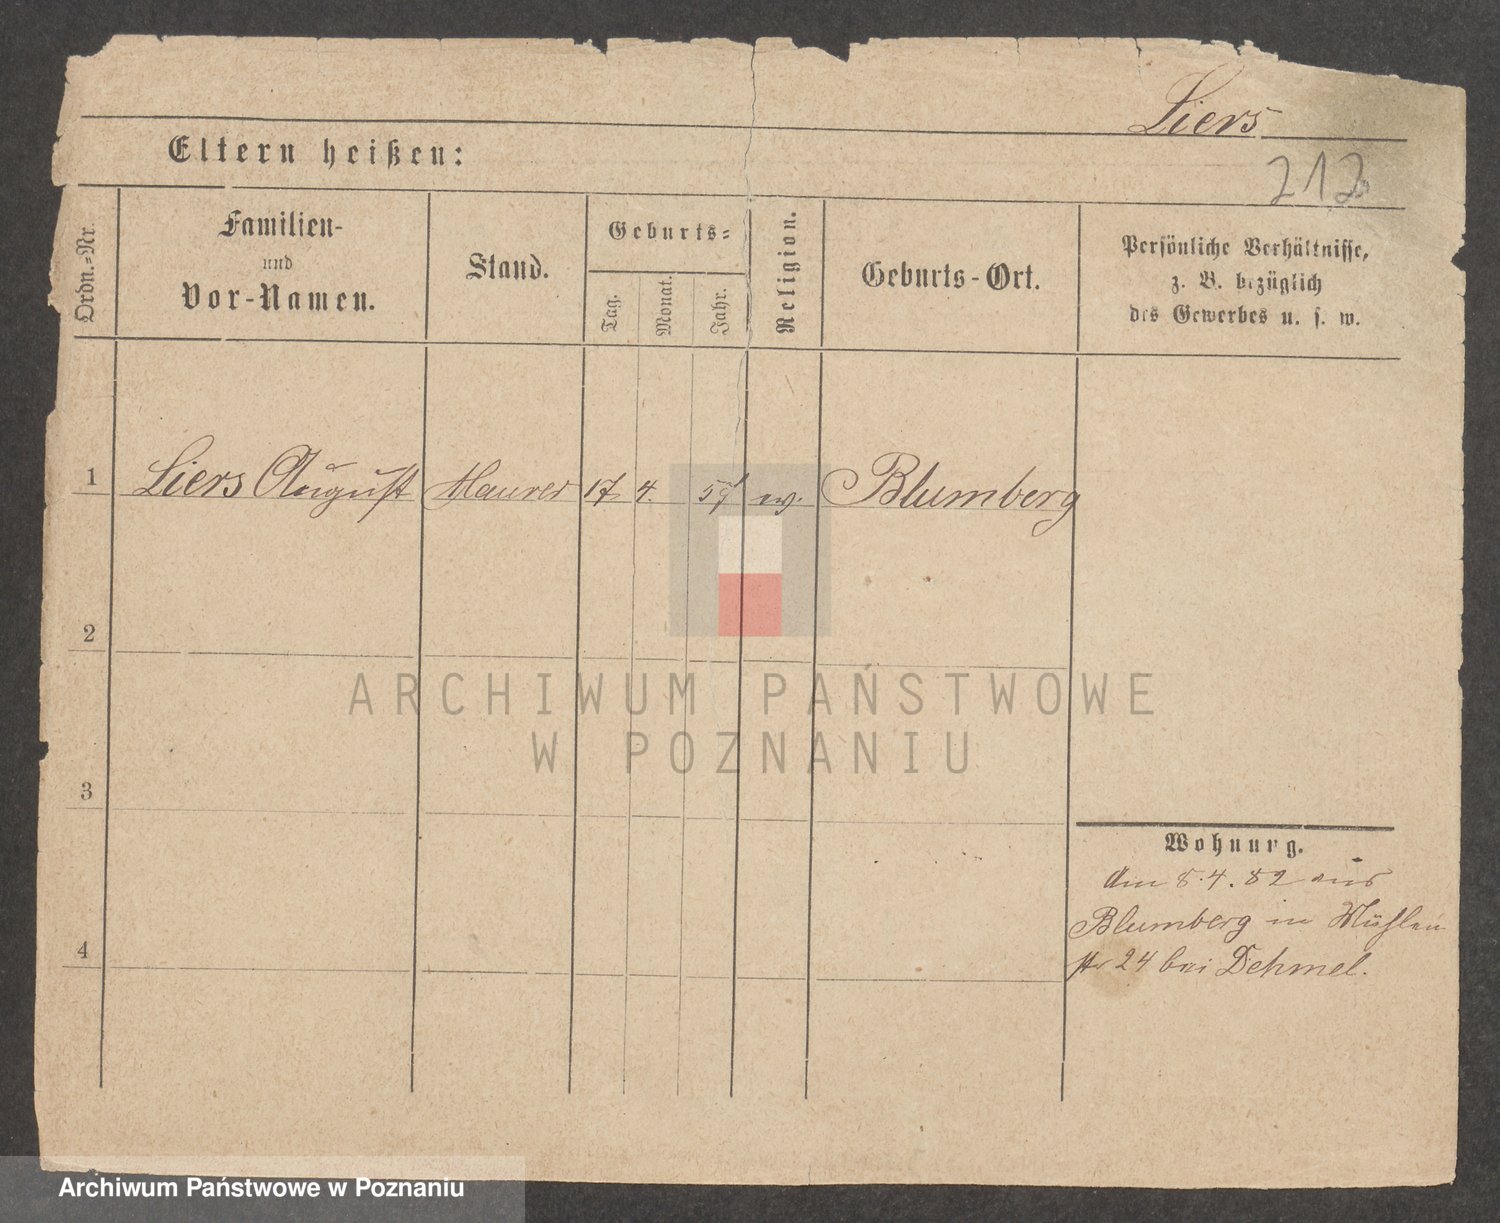 Liers
Eltern heißen:
212
Ordn.-Nr.
Familien-
und
Vor-Namen.
Stand.
Geburts-
Tag.
Monat.
Jahr.
Religion.
Geburts-Ort.
Persönliche Verhältnisse,
z. B. bezüglich
des Gewerbes u. s. w.
1 Liers August Maurer 17 4. 59 ev. Blumberg
2
3
4
Wohnung.
Am 8.4.82 aus
Blumberg in Mühlen
str 24 bei Dehmel.
ARCHIWUM PAŃSTWOWE
W POZNANIU
Archiwum Państwowe w Poznaniu